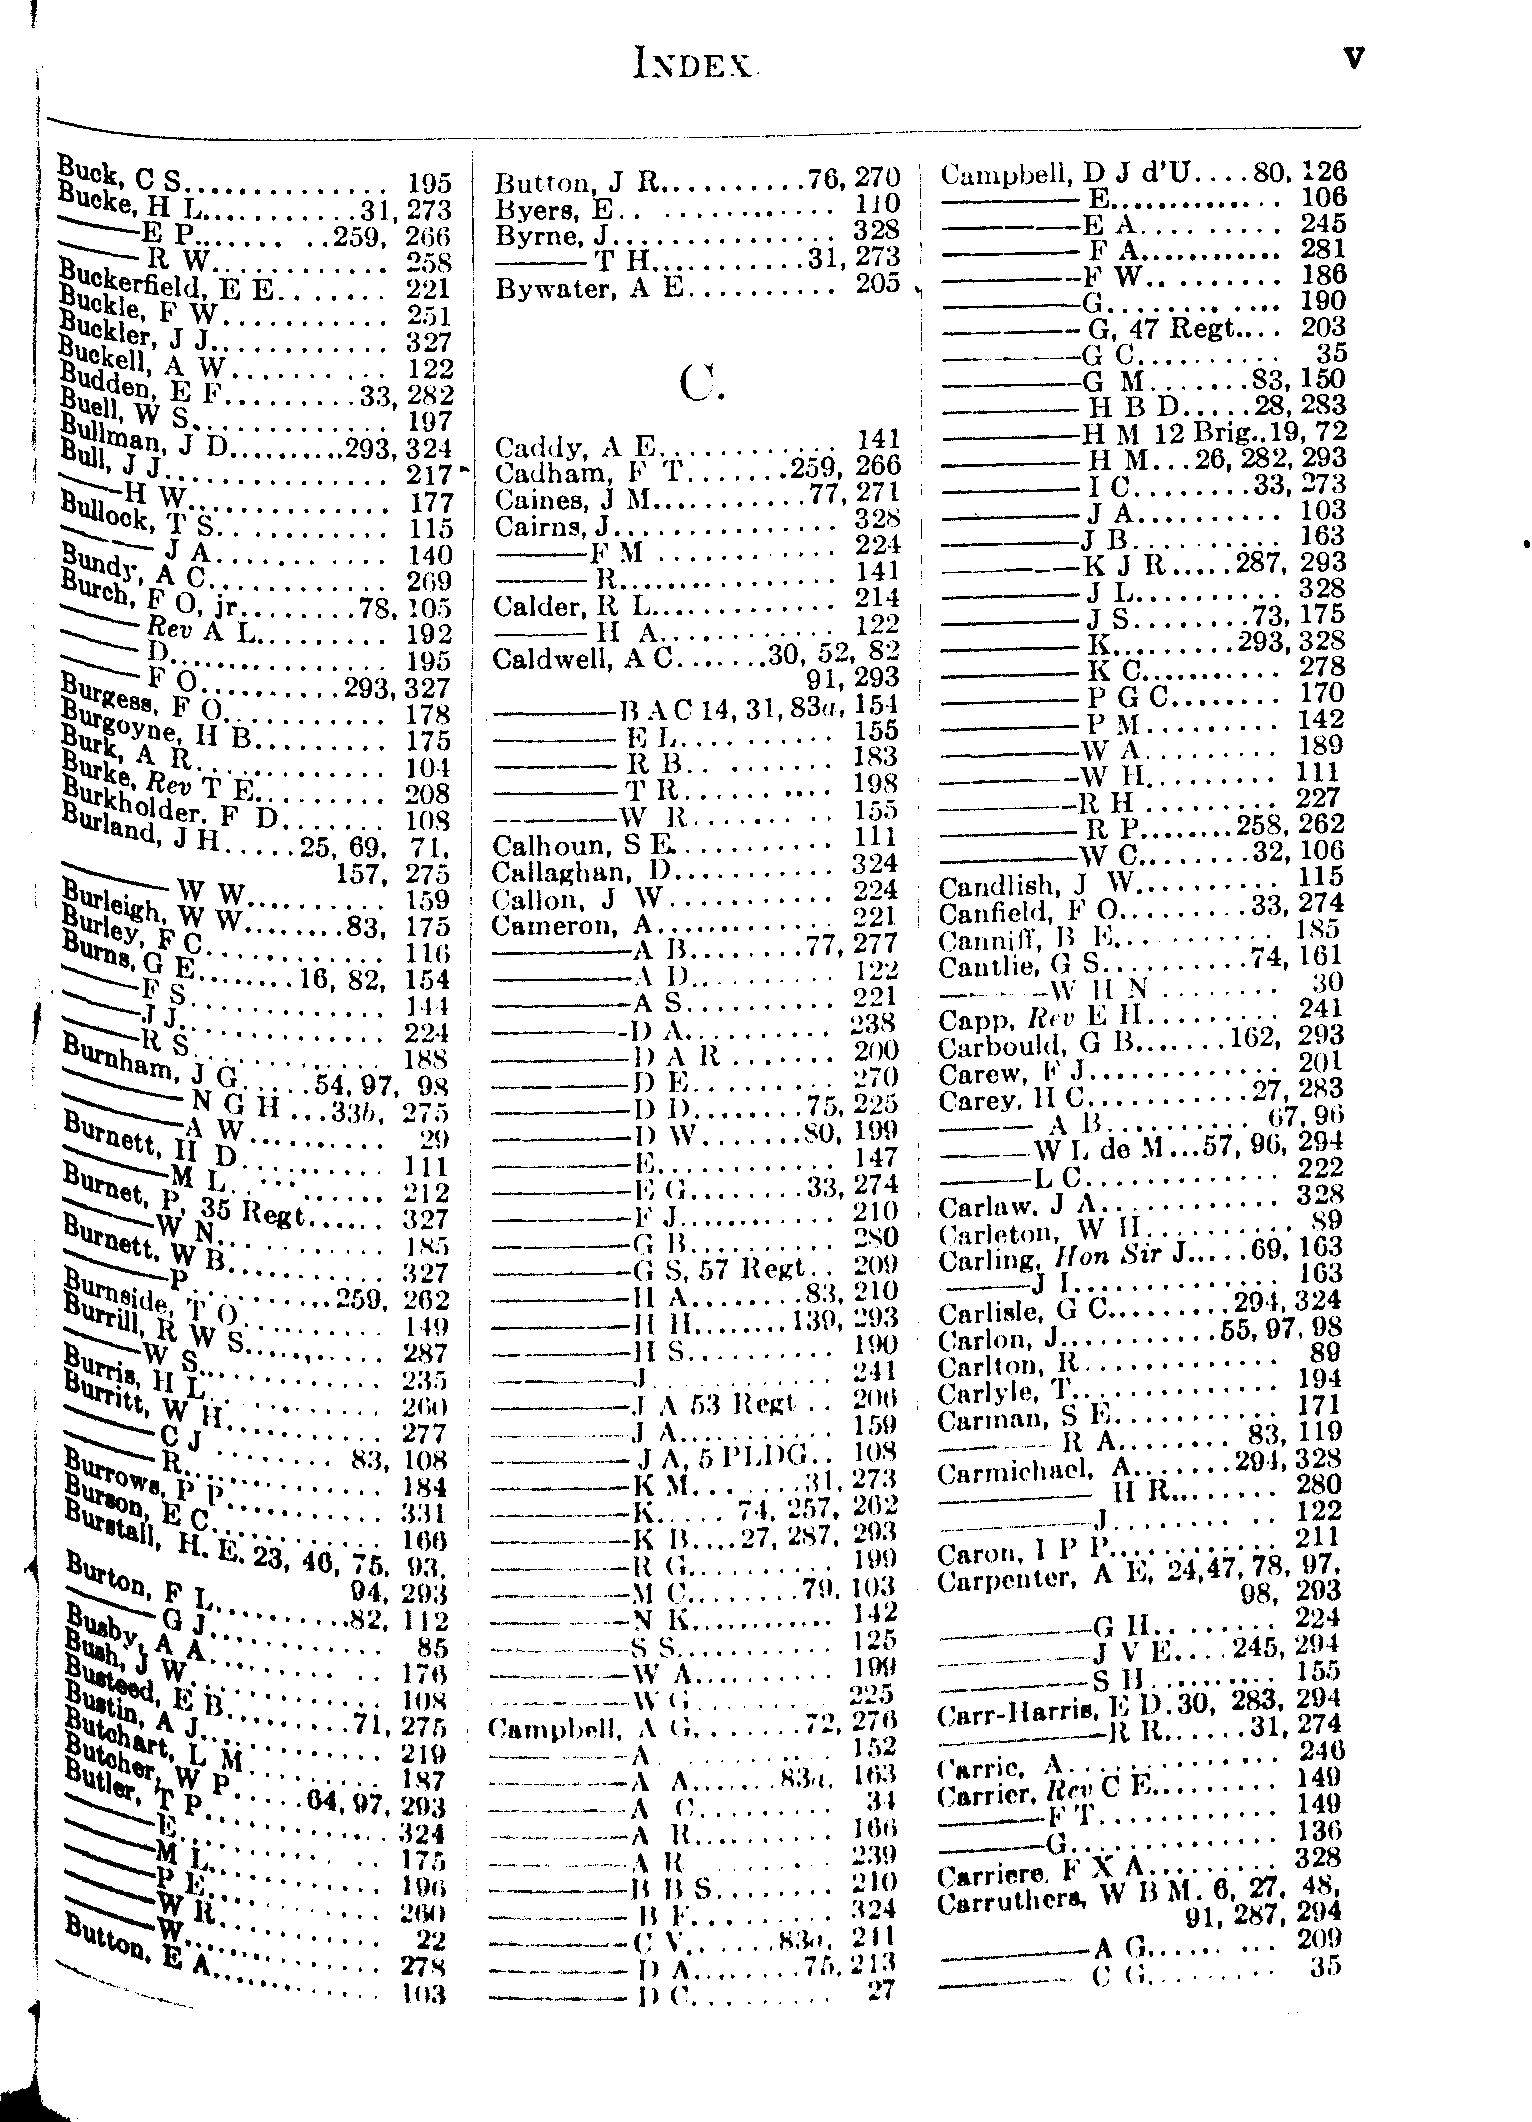 INDEX
V
Buck, C S............... 195
Bucke, H L...........31, 273
——E P....... ..259, 266
——R W............. 258
Buckerfield, E E........ 221
Buckle, F W............ 251
Buckler, J J............. 327
Buckell, A W........... 122
Budden, E F.........33, 282
Buell, W S.............. 197
Bullman, J D..........293, 324
Bull, J J................ 217
——H W............... 177
Bullock, T S............ 115
——J A............. 140
Bundy, A C............. 269
Burch, F O, jr........78, 105
——Rev A L......... 192
——D................ 195
——F O..........293, 327
Burgess, F O............ 178
Burgoyne, H B......... 175
Burk, A R............. 104
Burke, Rev T E......... 208
Burkholder, F D....... 108
Burland, J H.....25, 69, 71,
157, 275
——W W.......... 159
Burleigh, W W........83, 175
Burley, F C............. 116
Burns, G E........16, 82, 154
——F S.............. 144
——J J.............. 224
——R S............. 188
Burnham, J G.....54, 97, 98
——N G H ...33b, 275
——A W.......... 29
Burnett, H D.......... 111
——M L........... 212
Burnet, P, 35 Regt...... 327
——W N........... 185
Burnett, W B........... 327
——P..........259, 262
Burnside, T O.......... 149
Burrill, R W S......... 287
——W S............ 235
Burris, H L............ 260
Burritt, W H........... 277
——C J ........ 83, 108
——R............. 184
Burrows, P P........... 331
Burson, E C............ 166
Burstall, H. E. 23, 46, 75, 93,
94, 293
Burton, F L..........82, 112
——G J............ 85
Busby, A A............ 176
Bush, J W............ 108
Busteed, E B.........71, 275
Bustin, A J............ 219
Butchart, L M.......... 187
Butcher, W P......64, 97, 293
Butler, T P............. 324
——E............ 175
——M L........... 196
——P E........... 260
——W R........... 22
——W............. 278
Button, E A............ 103
Button, J R..........76, 270
Byers, E.. ............ 110
Byrne, J................ 328
——T H...........31, 273
Bywater, A E........... 205
C.
Caddy, A E............ 141
Cadham, F T.......259, 266
Caines, J M...........77, 271
Cairns, J............... 328
——F M ............ 224
——R............... 141
Calder, R L............ 214
——H A............ 122
Caldwell, A C.......30, 52, 82
91, 293
——B A C 14, 31, 83a, 154
——E L........... 155
——R B.. ....... 183
——T R........... 198
——W R.......... 155
Calhoun, S E........... 111
Callaghan, D........... 324
Callon, J W............ 224
Cameron, A............. 221
——A B........77, 277
——A D.......... 122
——A S.......... 221
——D A.......... 238
——D A R ....... 200
——D E.......... 270
——D D........75, 225
——D W.......80, 199
——E............ 147
——E G........33, 274
——F J........... 210
——G B.......... 280
——G S, 57 Regt.. 209
——H A........83, 210
——H H.......139, 293
——H S.......... 190
——J............ 241
——J A 53 Regt .. 206
——J A.......... 159
——J A, 5 PLDG.. 108
——K M........31, 273
——K..... 74, 257, 262
——K B....27, 287, 293
——R G.......... 199
——M C........79, 103
——N K.......... 142
——S S........... 125
——W A.......... 199
——W G.......... 225
Campbell, A G........72, 276
——A............ 152
——A A.......83a, 163
——A C.......... 34
——A R.......... 166
——A R.......... 239
——B B S........ 210
——B F.......... 324
——C V.......83a, 241
——D A........75, 213
——D C.......... 27
Campbell, D J d'U....80, 126
——E............. 106
——E A.......... 245
——F A........... 281
——F W.......... 186
——G............ 190
——G, 47 Regt.... 203
——G C.......... 35
——G M.......83, 150
——H B D.....28, 283
——H M 12 Brig..19, 72
——H M...26, 282, 293
——I C........33, 273
——J A.......... 103
——J B.......... 163
——K J R.....287, 293
——J L.......... 328
——J S........73, 175
——K.........293, 328
——K C........... 278
——P G C........ 170
——P M.......... 142
——W A.......... 189
——W H......... 111
——R H .......... 227
——R P........258, 262
——W C........32, 106
Candlish, J W.......... 115
Canfield, F O.........33, 274
Canniff, B E............ 185
Cantlie, G S..........74, 161
——W H N ........ 30
Capp, Rev E H.......... 241
Carbould, G B.......162, 293
Carew, F J.............. 201
Carey, H C............27, 283
——A B........... 67, 96
——W L de M...57, 96, 294
——L C............. 222
Carlaw, J A............ 328
Carleton, W H.......... 89
Carling, Hon Sir J.....69, 163
——J I.............. 163
Carlisle, G C.........294, 324
Carlon, J...........55, 97, 98
Carlton, R.............. 89
Carlyle, T.............. 194
Carman, S E............ 171
——R A........ 83, 119
Carmichael, A.......294, 328
——H R........ 280
——J........... 122
Caron, I P P............ 211
Carpenter, A E, 24, 47, 78, 97,
98, 293
——G H.. ....... 224
——J V E....245, 294
——S H.......... 155
Carr-Harris, E D.30, 283, 294
——R R......31, 274
Carric, A............... 246
Carrier, Rev C E......... 149
——F T............. 149
——G.............. 136
Carriere, F X A......... 328
Carruthers, W B M. 6, 27, 48,
91, 287, 294
——A G...... ... 209
——C G......... 35